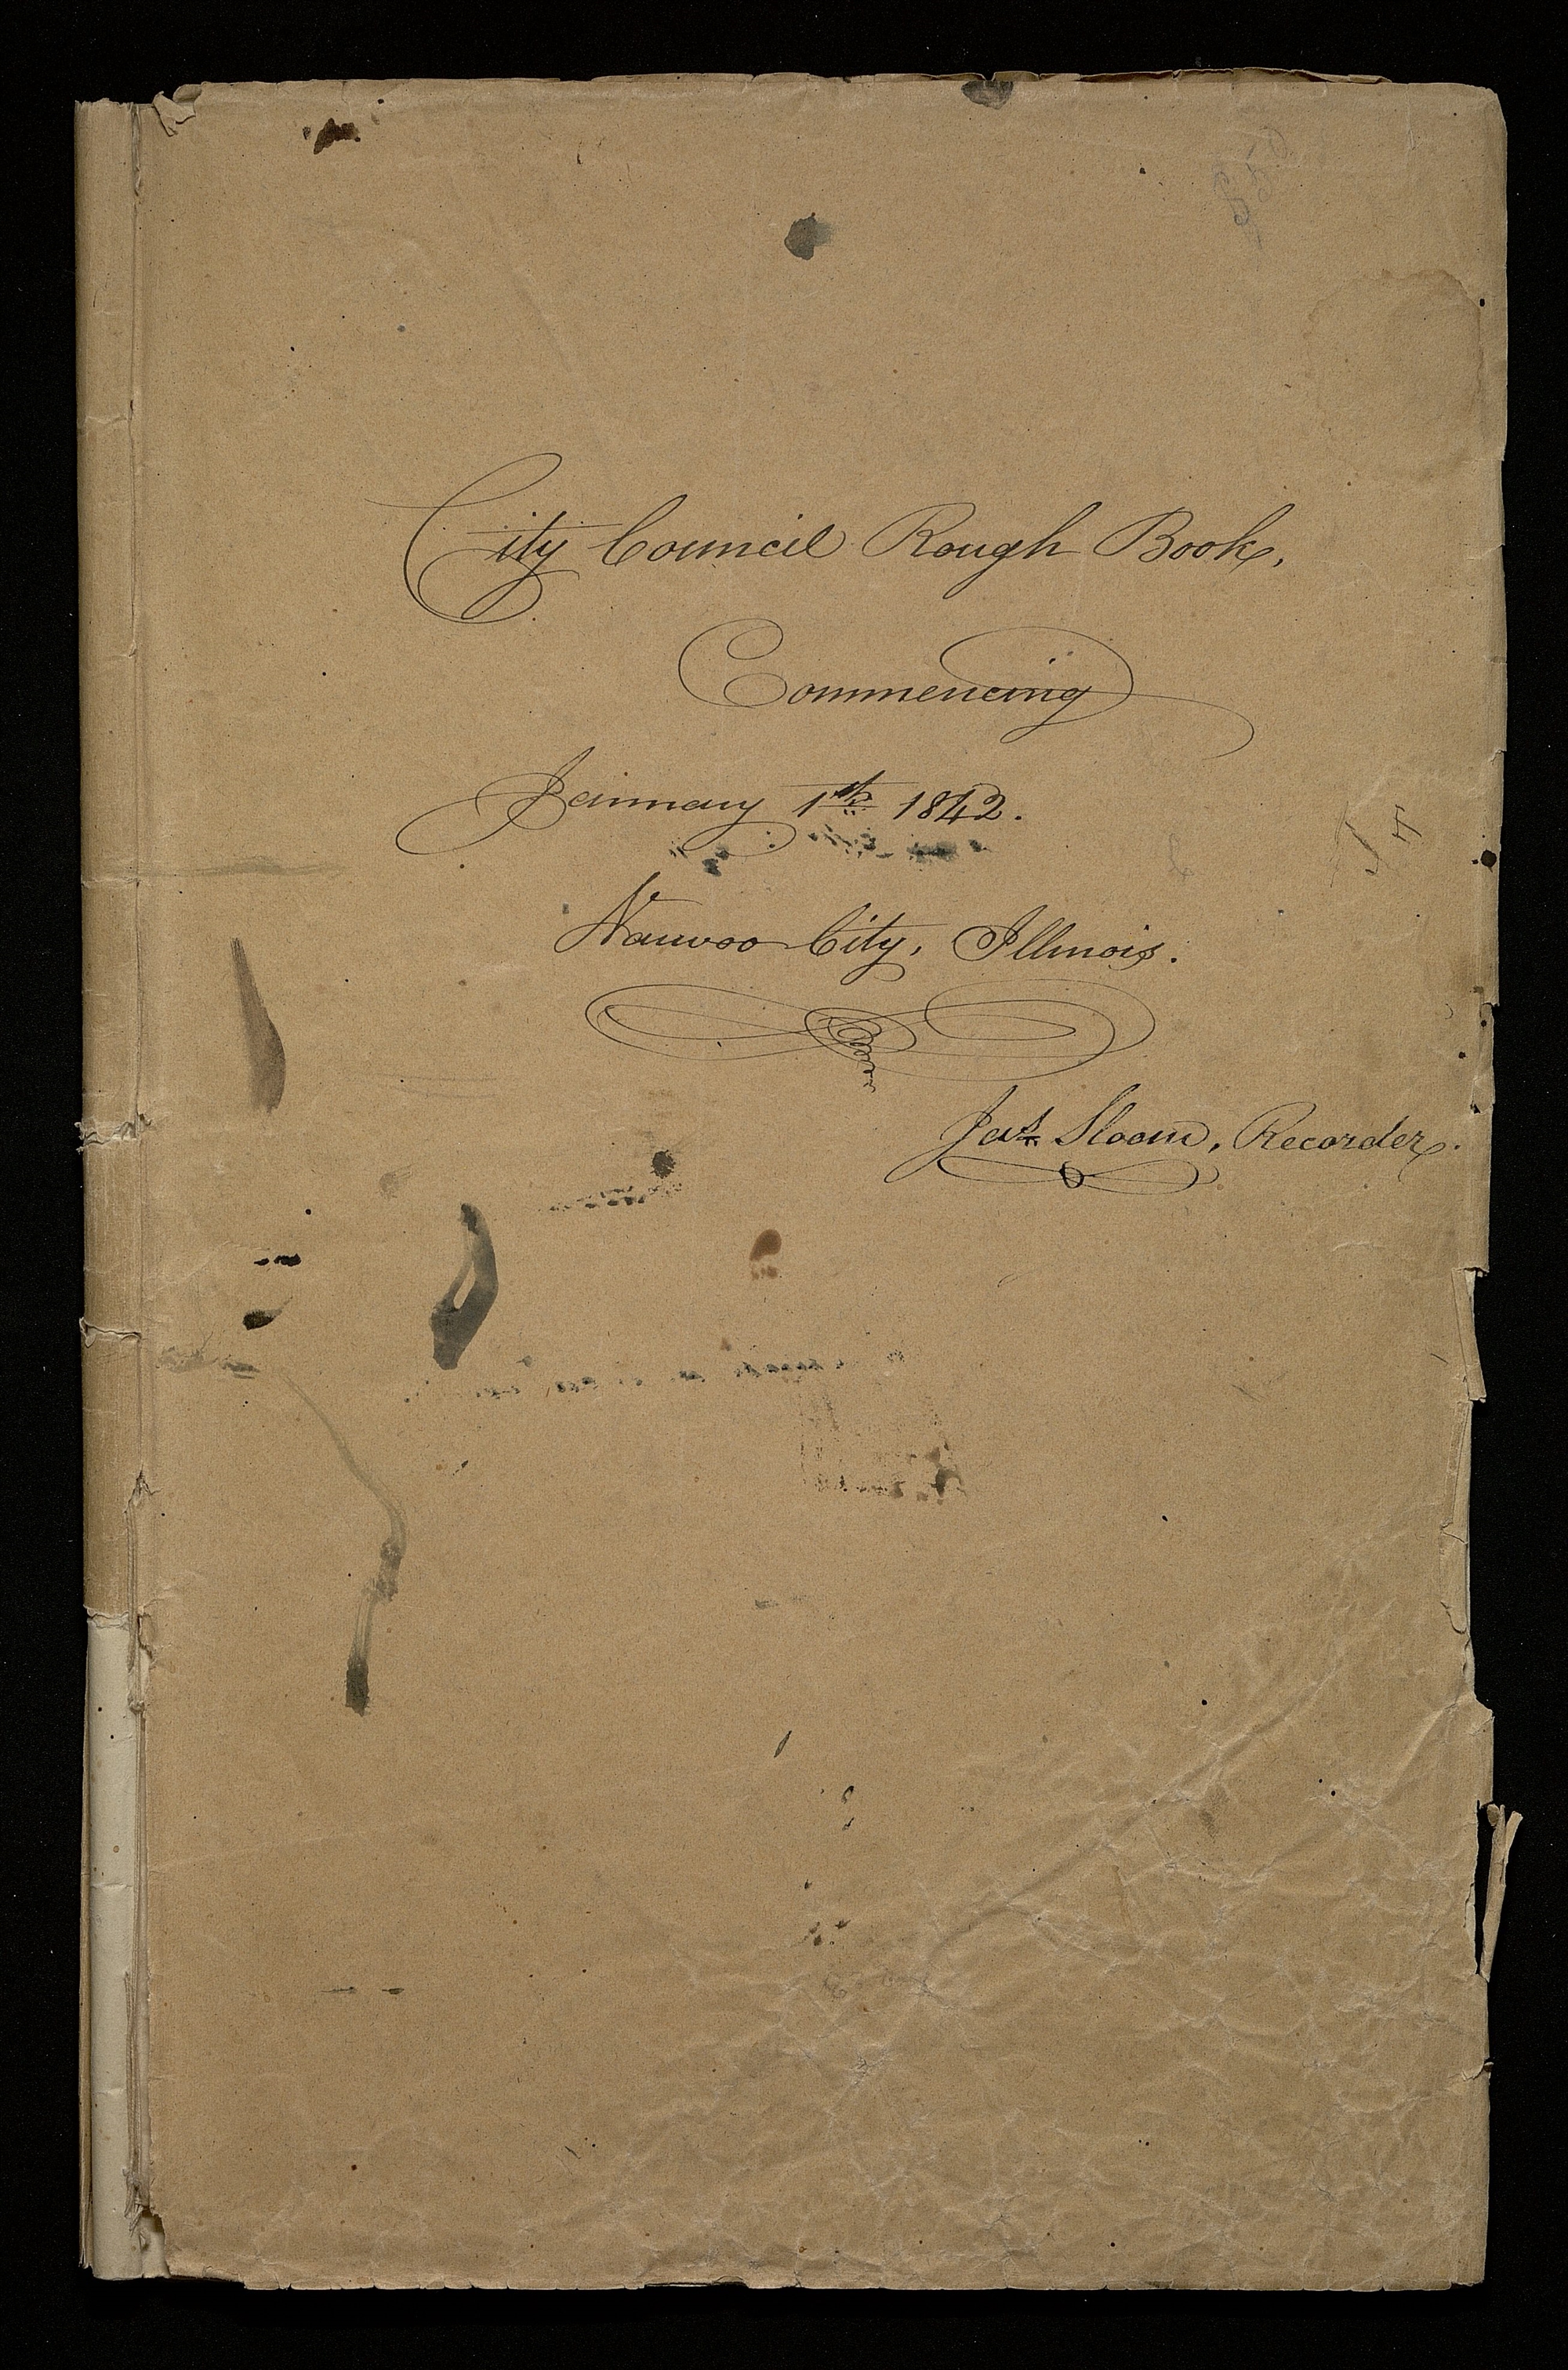 City Council Rough Book,
Commencing
January 1st. 1842.
Nauvoo City, Illinois.
Jas. Sloan, Recorder.